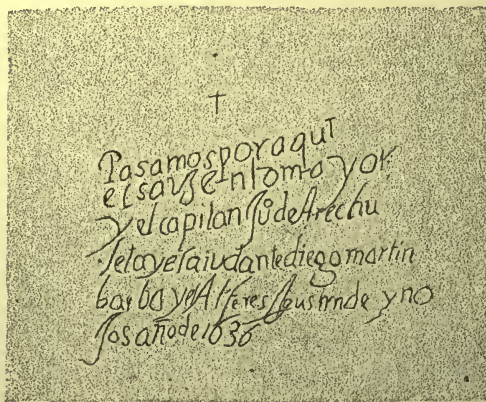 †
Pasamos por aqui
el sargento mayor
y el capitan Juº de Archu
leta y el aiudante diego martin
barba y el Alferes de yno
Jos año de 1636